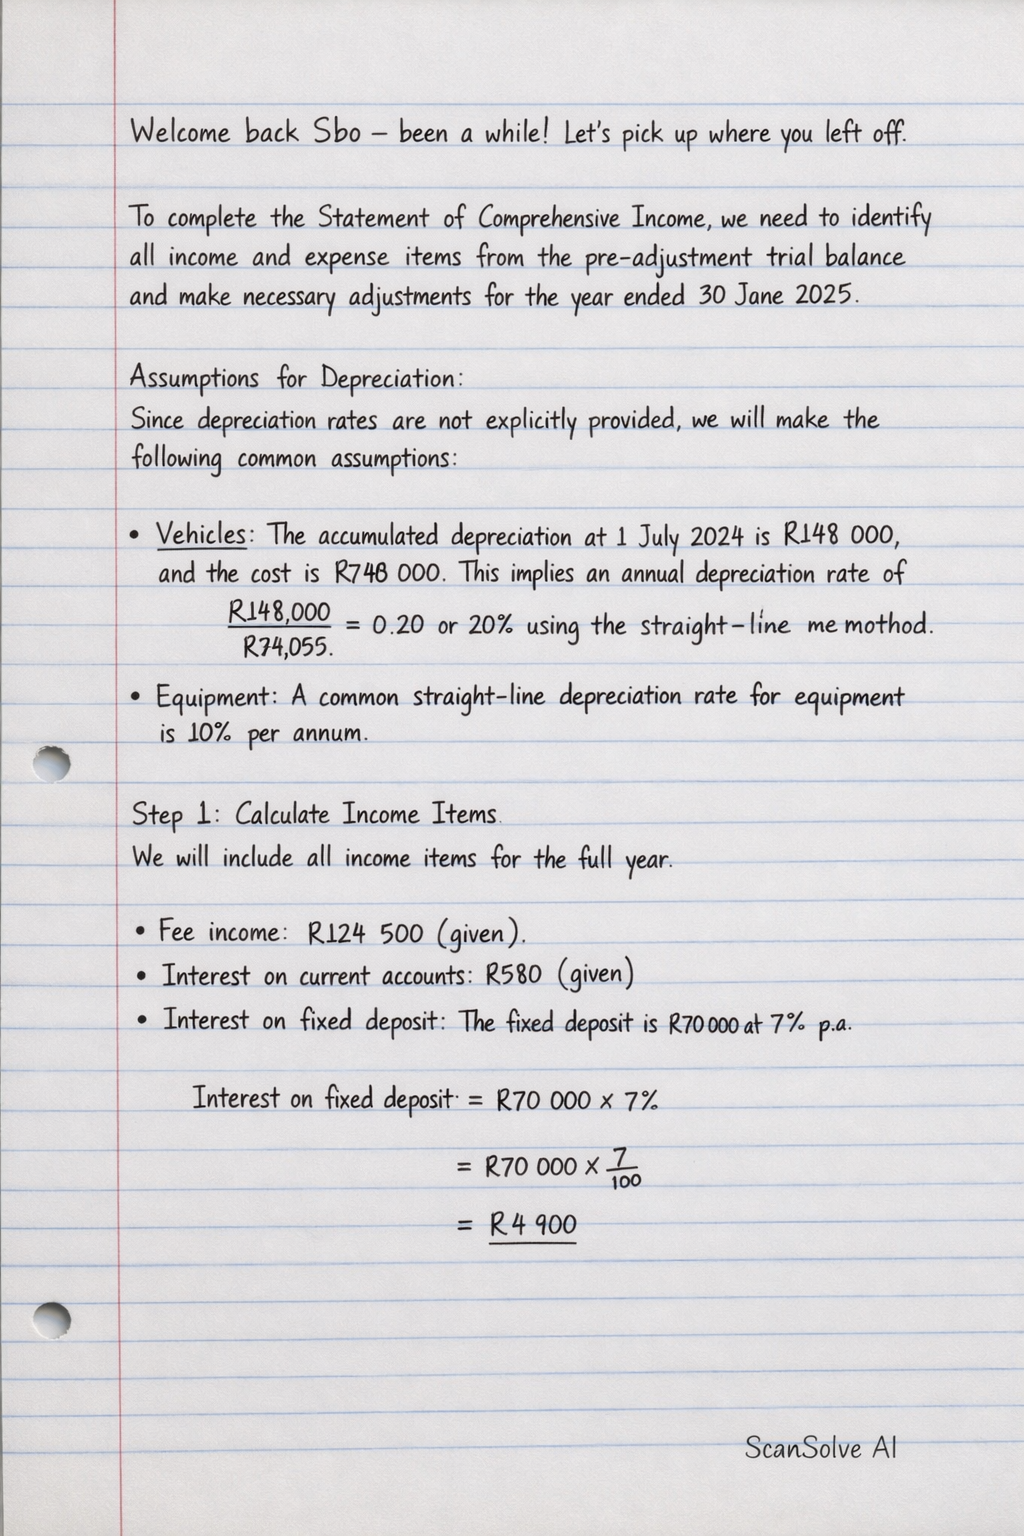 Welcome back Sbo – been a while! Let's pick up where you left off.
To complete the Statement of Comprehensive Income, we need to identify
all income and expense items from the pre-adjustment trial balance
and make necessary adjustments for the year ended 30 Jane 2025.
Assumptions for Depreciation:
Since depreciation rates are not explicitly provided, we will make the
following common assumptions:
• Vehicles: The accumulated depreciation at 1 July 2024 is R148 000,
and the cost is R748 000. This implies an annual depreciation rate of
R148,000
= 0.20 or 20% using the straight-line me mothod.
R74,055.
• Equipment: A common straight-line depreciation rate for equipment
is 10% per annum.
Step 1: Calculate Income Items.
We will include all income items for the full year.
• Fee income: R124 500 (given).
• Interest on current accounts: R580 (given)
• Interest on fixed deposit: The fixed deposit is R70 000 at 7% p.a.
Interest on fixed deposit = R70 000 × 7%
= R70 000 × 7/100
= R4 900
ScanSolve AI